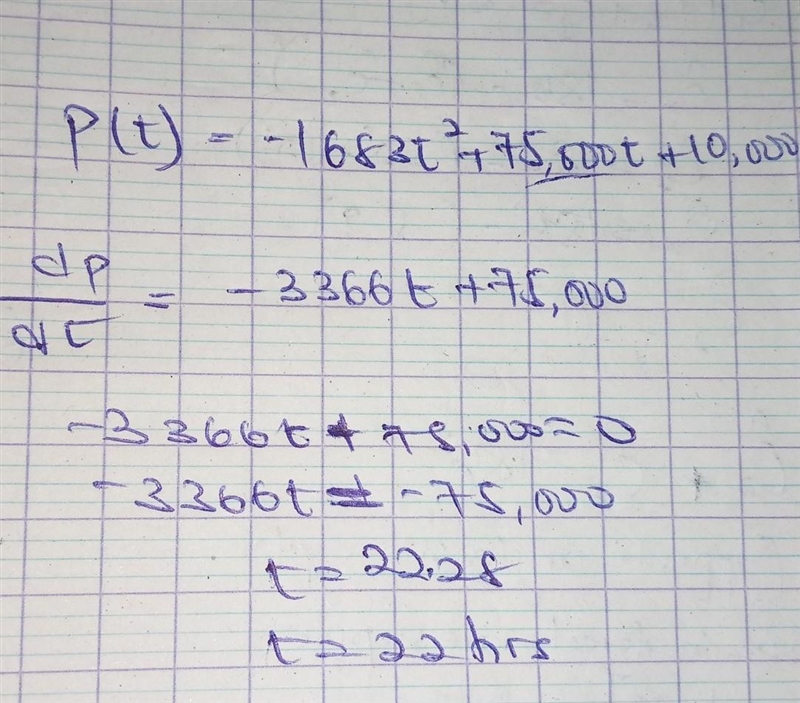 P(t) = -1683t²+75,000t+10,000
dp/dt = -3366t+75,000
-3366t+75,000=0
-3366t=-75,000
t=22.28
t=22hrs